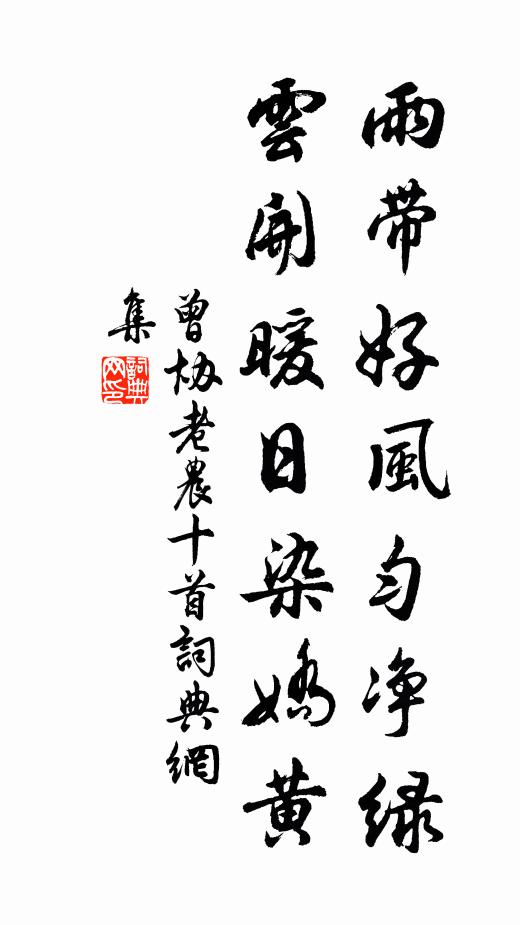 雨帶好風勻净緑
雲開暖日染嬌黄
曾協老農十首詞典網
集
詞典网印